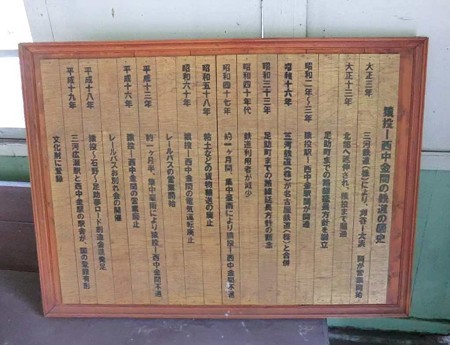 猿投ー西中金間の鉄道の歴史
大正三年
三河鉄道（株）により、刈谷ー大浜 間が営業開始
大正十三年
北部へ延伸され、猿投まで開通
昭和二年〜三年
足助町までの路線延長方針を国立
猿投駅ー西中金駅間が開通
昭和十六年
三河鉄道（株）が名古屋鉄道（株）と合併
昭和三十三年
足助町までの路線延長方針の断念
昭和四十年代
鉄道利用者が減少
昭和四十七年
約一ヶ月間、集中豪雨により猿投ー西中金間不通
昭和五十八年
粘土などの貨物輸送の廃止
昭和六十年
猿投ー西中金間の電気運転廃止
レールバスの営業開始
平成十三年
約一ヶ月半、集中豪雨により猿投ー西中金間不通
平成十六年
猿投ー西中金間の営業廃止
レールバスお別れ会の開催
平成十八年
猿投ー石野ー足助夢ロード創造会議発足
平成十九年
三河広瀬駅と西中金駅の駅舎が、国の登録有形
文化財に登録